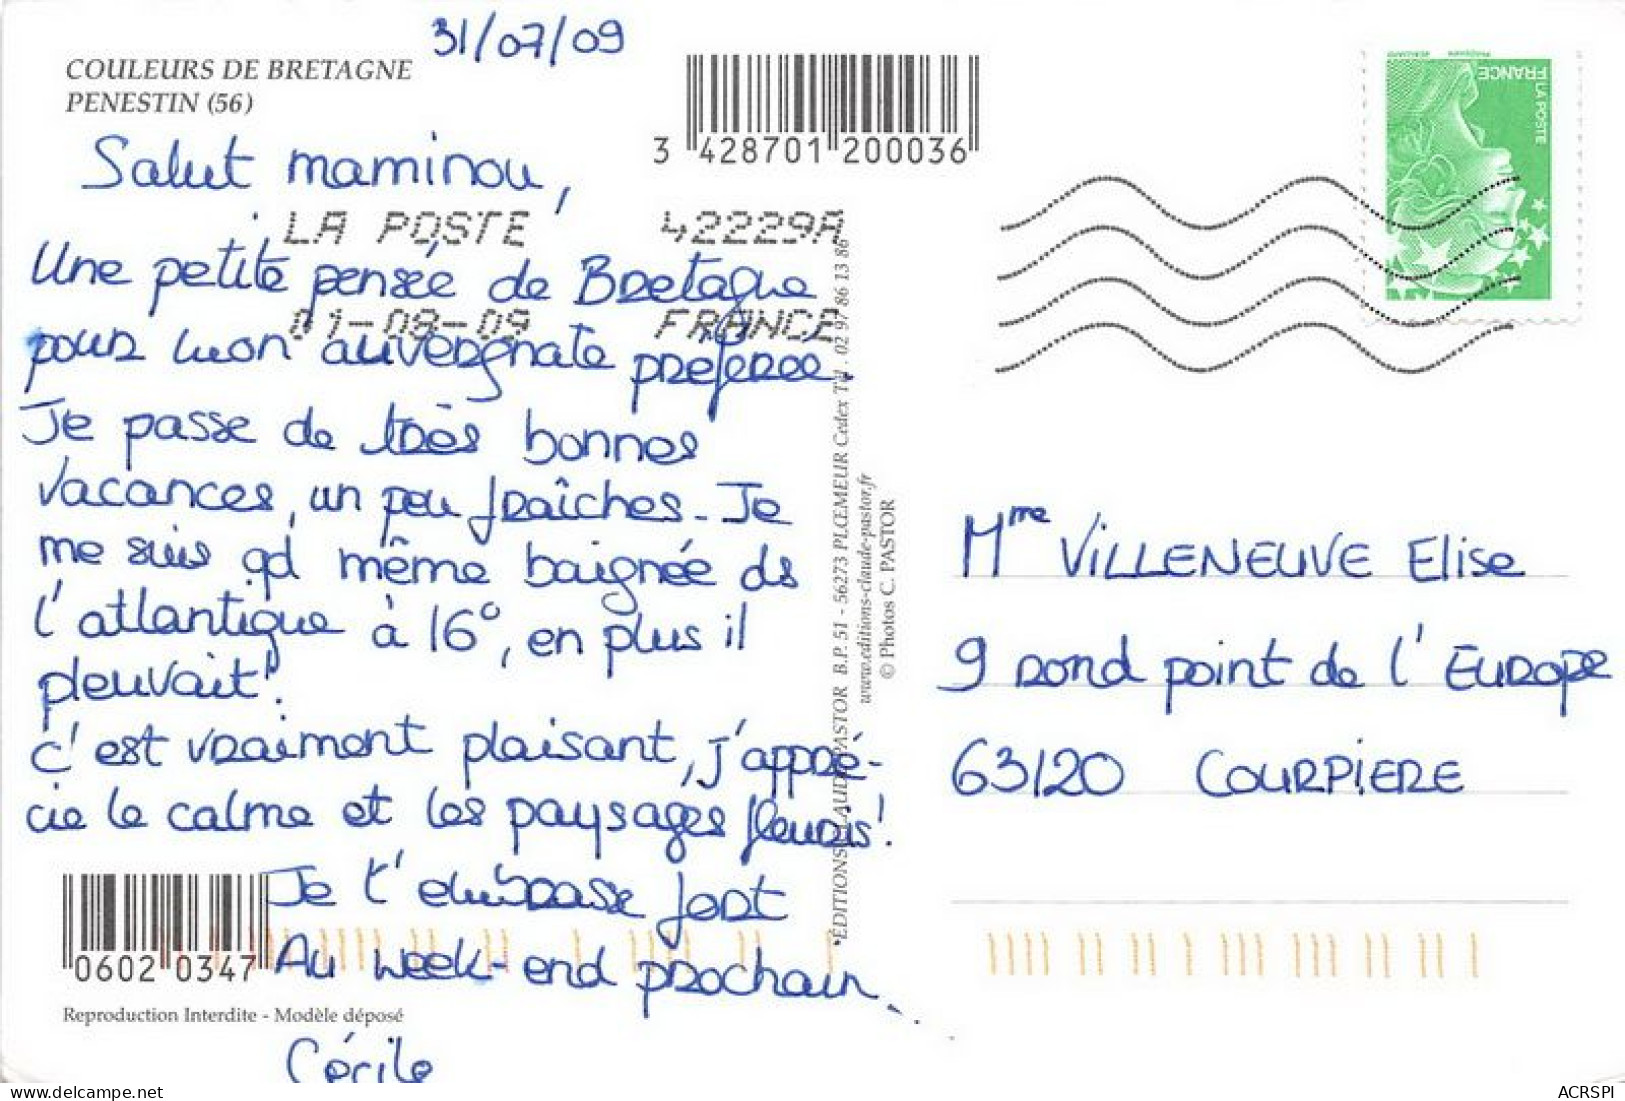 31/07/09
COULEURS DE BRETAGNE
PENESTIN (56)
3 428701 200036
Salut maminou,
LA POSTE 42229A
01-08-09 FRANCE
Une petite pensée de Bretagne
pour mon auvergnate préférée.
Je passe de très bonnes
vacances, un peu fraîches. Je
me suis qd même baignée ds
l'atlantique à 16°, en plus il
pleuvait!
C'est vraiment plaisant, j'appré-
cie le calme et les paysages fleuris!
Je t'embrasse fort
Au week-end prochain.
Cécile
0602 0347
Reproduction Interdite - Modèle déposé
EDITIONS CLAUDE PASTOR B.P. 51 - 56273 PLŒMEUR Cedex Tél. 02 97 86 13 86
www.editions-claude-pastor.fr
© Photos C. PASTOR
LA POSTE
FRANCE
Mme VILLENEUVE Elise
9 rond point de l'EUROPE
63120 COURPIERE
ACRSPI